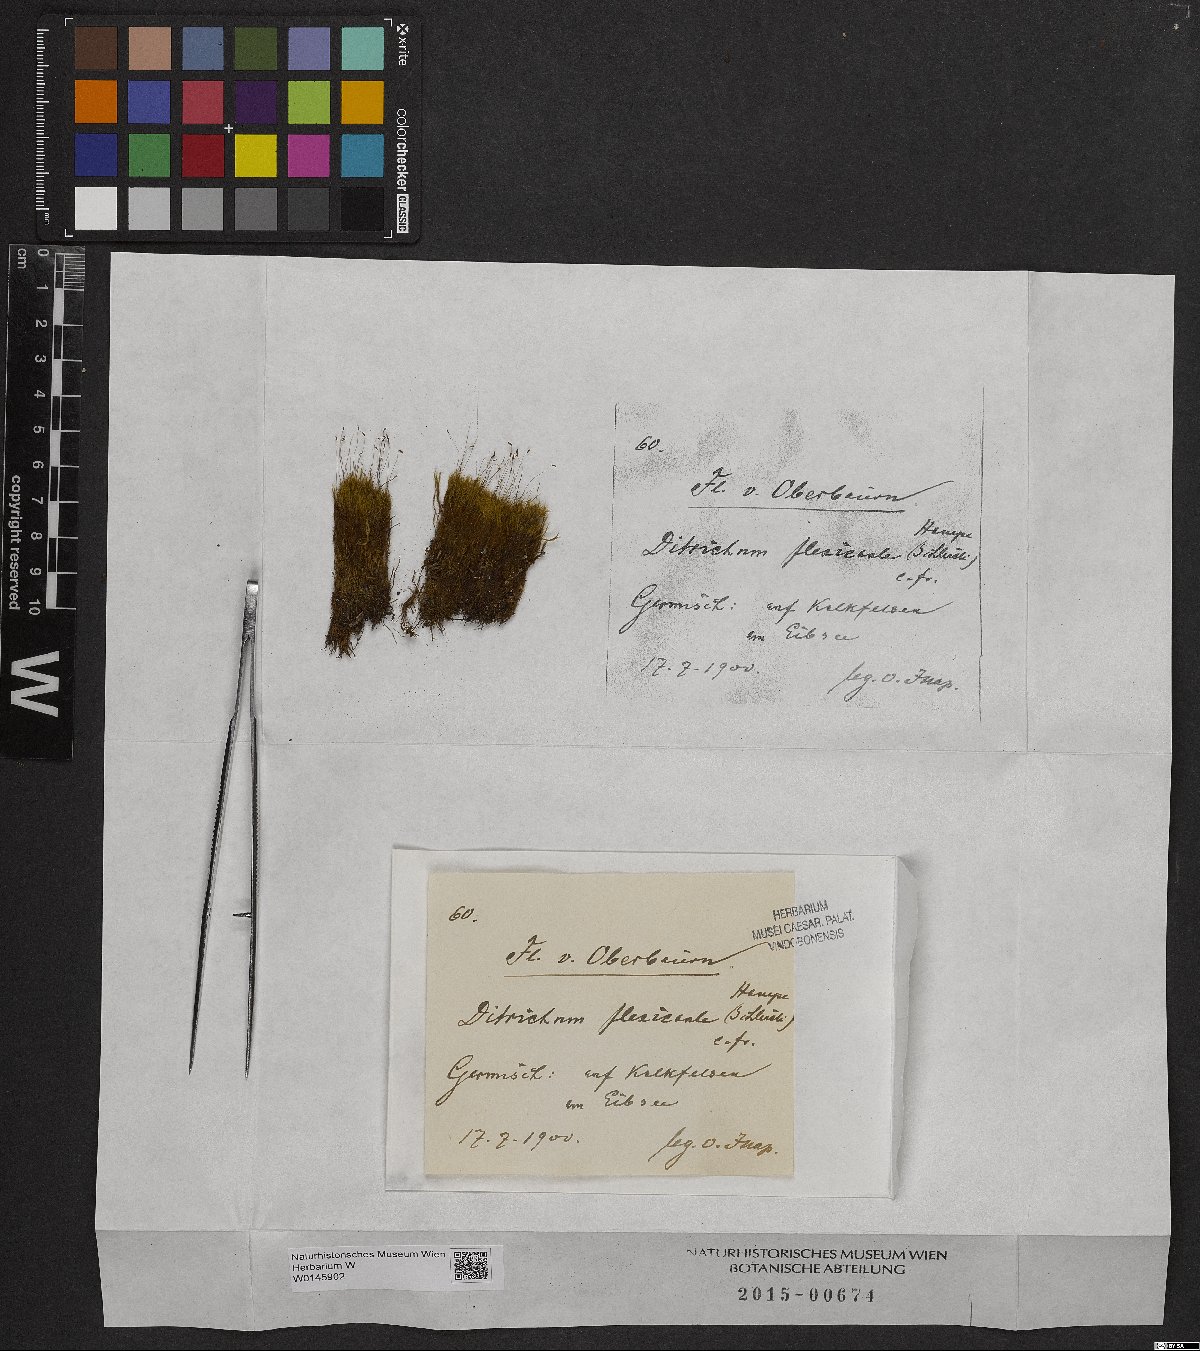 x-rite
colorchecker
CLASSIC
mm
cm
0
1
2
3
4
5
6
7
8
9
10
copyright reserved
W
60.
Fl. v. Oberbaiern
Hampe
Ditrichum flexicaule (Schleich.)
c. fr.
Garmisch: auf Kalkfelsen
am Eibsee
17. 7. 1900.
leg. O.
60.
HERBARIUM
MUSEI CAESAR. PALAT.
VINDOBONENSIS
Fl. v. Oberbaiern
Hampe
Ditrichum flexicaule (Schleich.)
c. fr.
Garmisch: auf Kalkfelsen
am Eibsee
17. 7. 1900.
leg. O.
Naturhistorisches Museum Wien
Herbarium W
W0145902
NATURHISTORISCHES MUSEUM WIEN
BOTANISCHE ABTEILUNG
2015-00674
BY SA